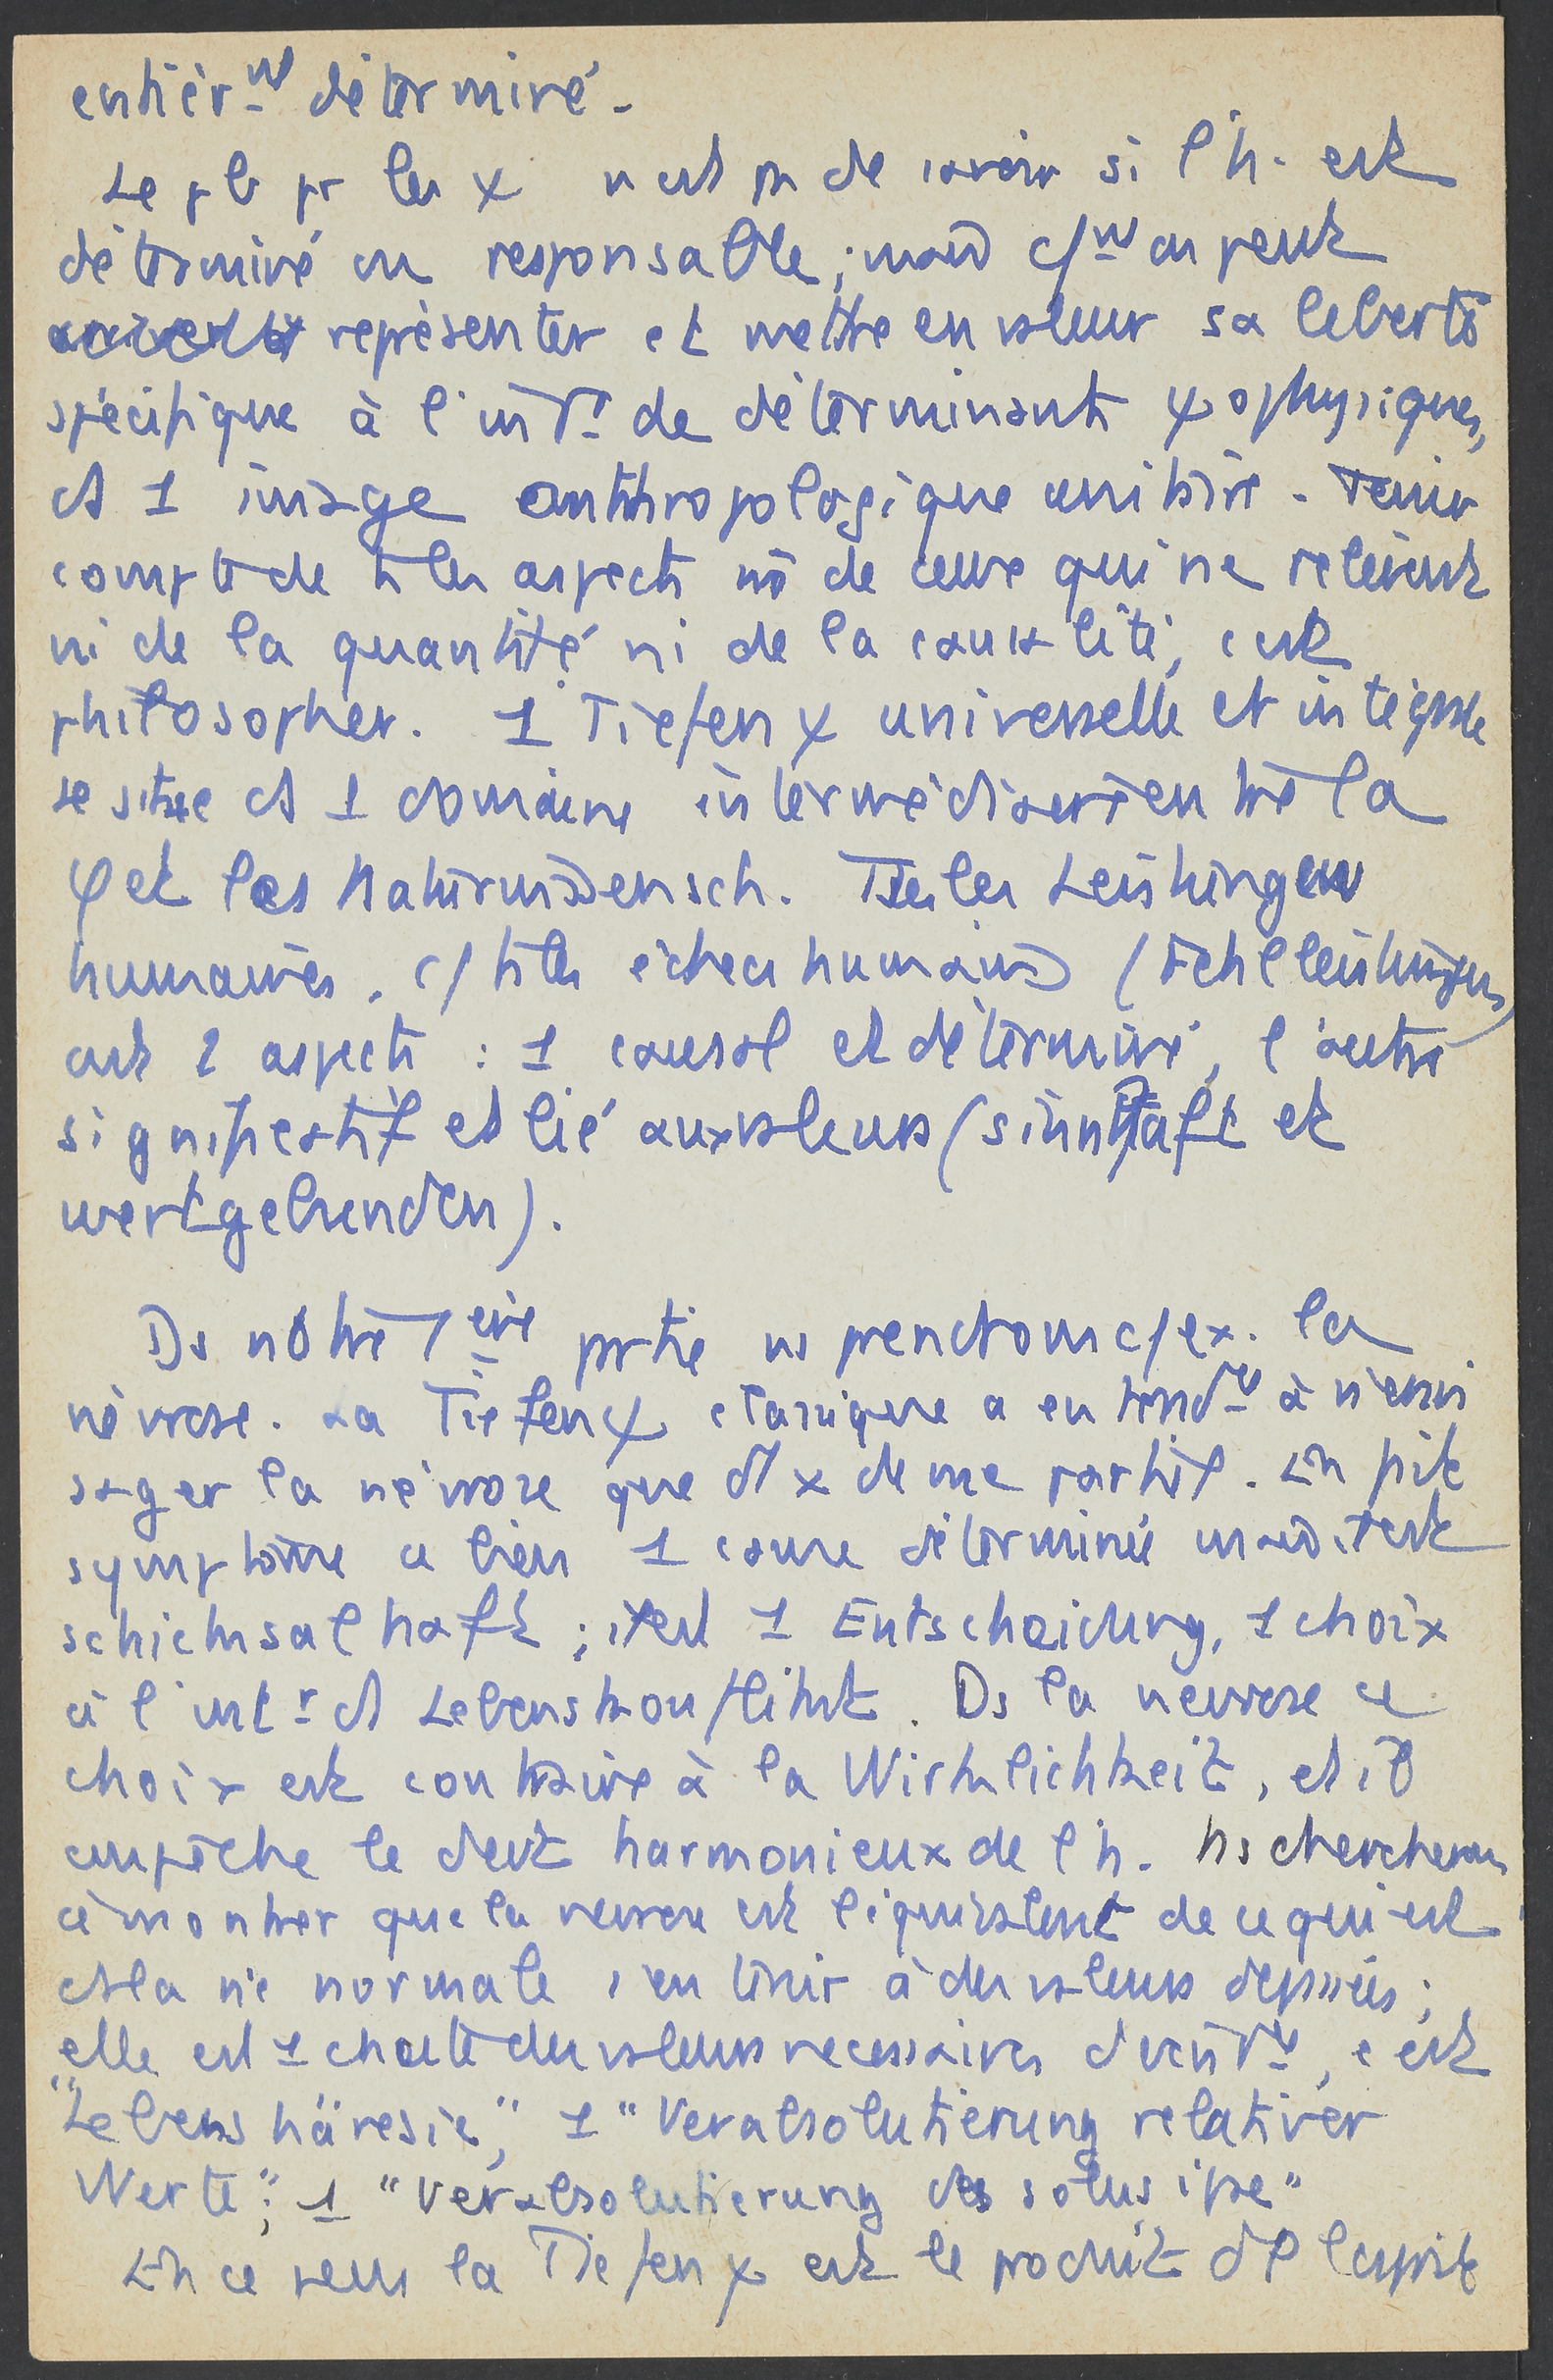 entièrmt déterminé -
Le pb pr les χ n'est pas de savoir si l'h. est
déterminé ou responsable ; mais c/mt on peut
représenter et mettre en valeur sa liberté
spécifique à l'intr de déterminants χophysiques,
ds 1 image anthropologique unitaire - Tenir
compte de ts les aspects mê de ceux qui ne relèvent
ni de la quantité ni de la causalité, c'est
philosopher. 1 Tiefenχ universelle et intégrale
se situe ds 1 domaine intermédiaire entre la
φ et les Naturwissensch. Ttes les Leistungen
humaines, c/ ts les échecs humains (Fehlleistungen)
ont 2 aspects : 1 causal et déterminé, l'autre
significatif et lié aux valeurs (sinnhaft et
wertgebenden).
Ds notre 1ère partie ns prendrons c/ ex. la
névrose. La Tiefenχ classique a eu tendce à n'envi
sager la névrose que ds de me partiel. Un pik
symptôme a bien 1 cause déterminée mais il est
schicksalhaft ; il est 1 Entscheidung, 1 choix
à l'intr ds Lebenskonflikt. Ds la névrose ce
choix est contraire à la Wirklichkeit, et il
empêche le devt harmonieux de l'h. Ns chercherons
à montrer que la névrose est l'équivalent de ce qui est
ds la vie normale s'en tenir à des valeurs dépassées ;
elle est 1 chute des valeurs nécessaires , c'est
"Lebenshäresie", 1 "Verabsolutierung relativer
Werte" ; 1 "Verabsolutierung des solus ipse"
En ce sens la Tiefenχ est le produit de l'esprit